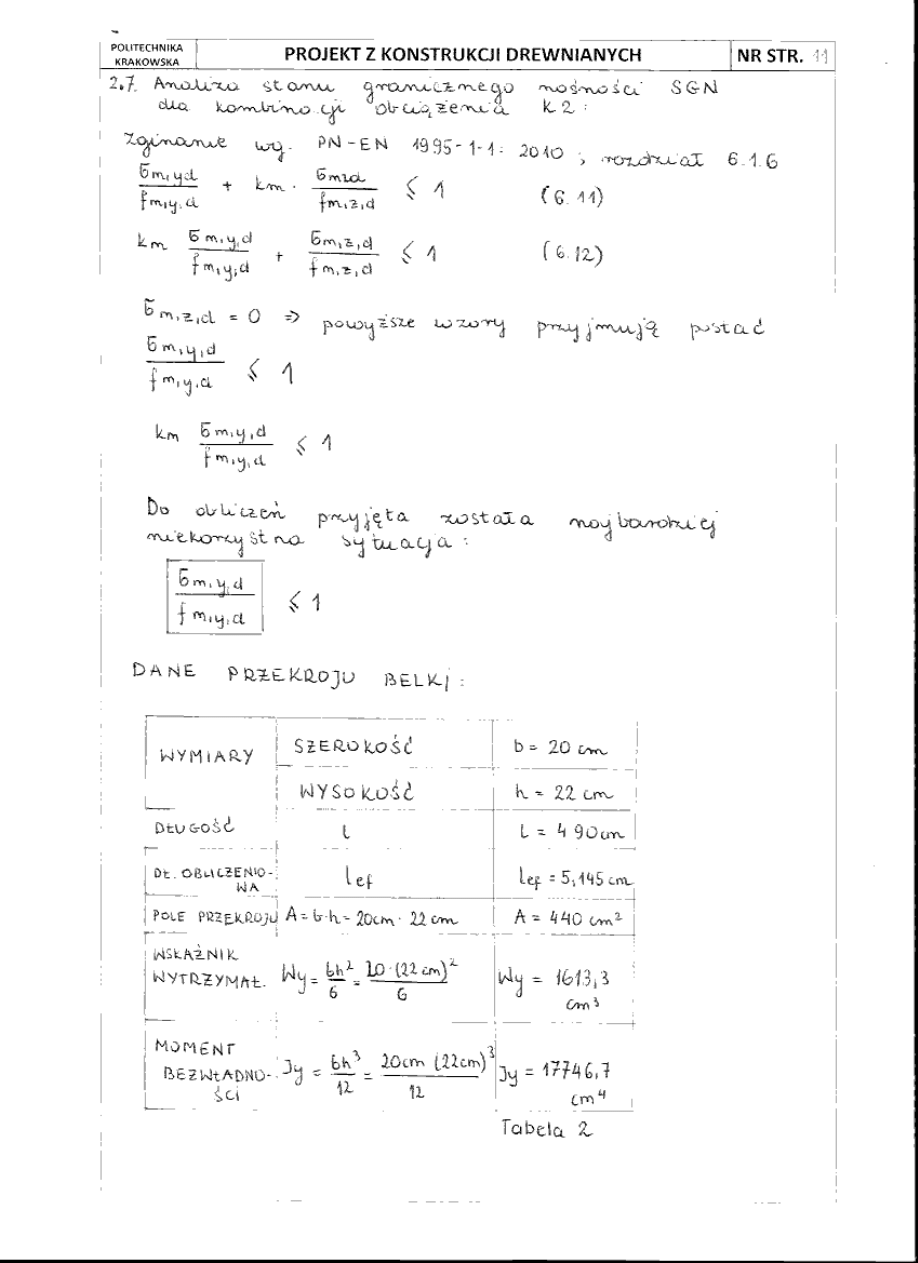 POLITECHNIKA
KRAKOWSKA
PROJEKT Z KONSTRUKCJI DREWNIANYCH
NR STR. 11
2.7. Analiza stanu granicznego nośności SGN
dla kombinacji obciążenia K2:
Zginanie wg. PN-EN 1995-1-1: 2010, rozdział 6.1.6
σm,y,d / fm,y,d + km · σm,z,d / fm,z,d ≤ 1 (6.11)
km σm,y,d / fm,y,d + σm,z,d / fm,z,d ≤ 1 (6.12)
σm,z,d = 0 => powyższe wzory przyjmują postać
σm,y,d / fm,y,d ≤ 1
km σm,y,d / fm,y,d ≤ 1
Do obliczeń przyjęta została najbardziej
niekorzystna sytuacja:
σm,y,d / fm,y,d ≤ 1
DANE PRZEKROJU BELKI:
WYMIARY SZEROKOŚĆ b = 20 cm
WYSOKOŚĆ h = 22 cm
DŁUGOŚĆ l L = 490 cm
DŁ. OBLICZENIO-
WA lef lef = 5,145 cm
POLE PRZEKROJU A = b·h = 20cm · 22 cm A = 440 cm²
WSKAŹNIK
WYTRZYMAŁ. Wy = bh²/6 = 20·(22 cm)²/6 Wy = 1613,3
cm³
MOMENT
BEZWŁADNO-
ŚCI Jy = bh³/12 = 20cm (22cm)³/12 Jy = 17746,7
cm⁴
Tabela 2